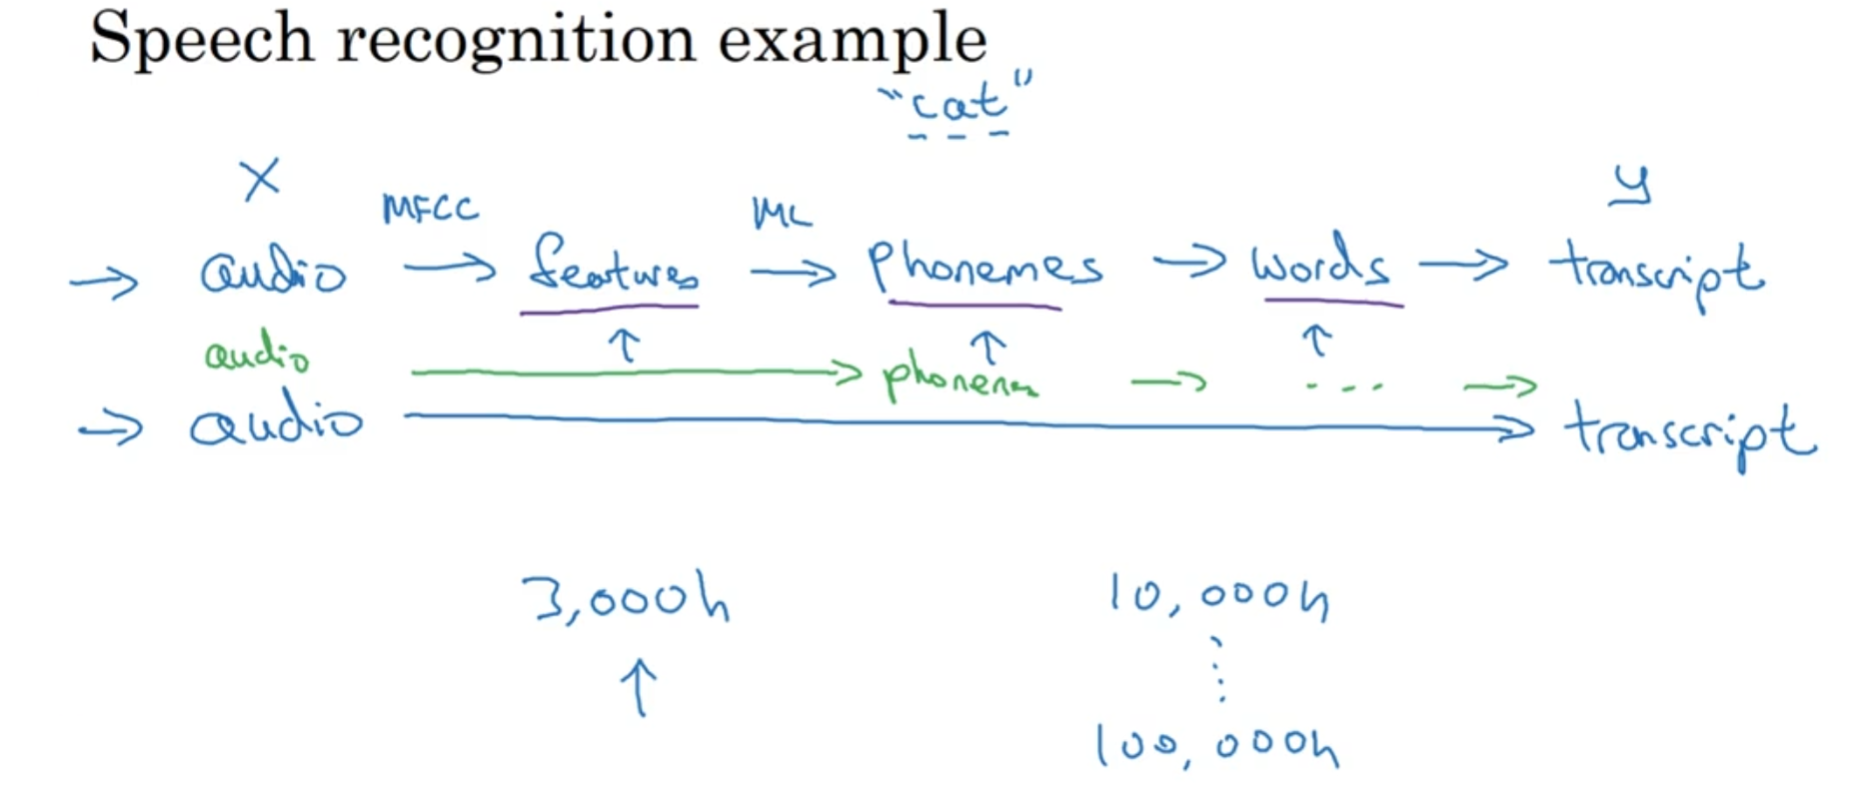 Speech recognition example
"cat"
X MFCC ML y
→ audio → features → phonemes → words → transcript
↑ ↑ ↑
audio → phonemes → ... →
→ audio → transcript
3,000h 10,000h
↑ ⋮
100,000h